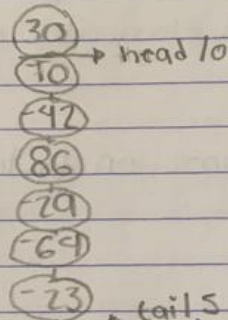 30
→ head 10
10
-42
86
-29
-64
-23
tail 5